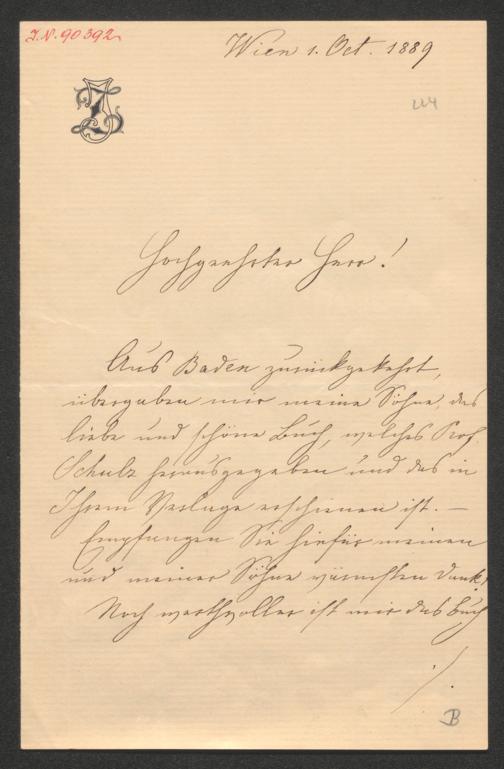 I.N. 90392
Wien 1. Oct. 1889
224
Hochgeehrter Herr!
Aus Baden zurückgekehrt,
übergaben mir meine Söhne, das
liebe und schöne Buch, welches Prof.
Schulz herausgegeben und das in
Ihrem Verlage erschienen ist. —
Empfangen Sie hiefür meinen
und meiner Söhne wärmsten Dank!
Noch werthvoller ist mir das Buch
./.
B